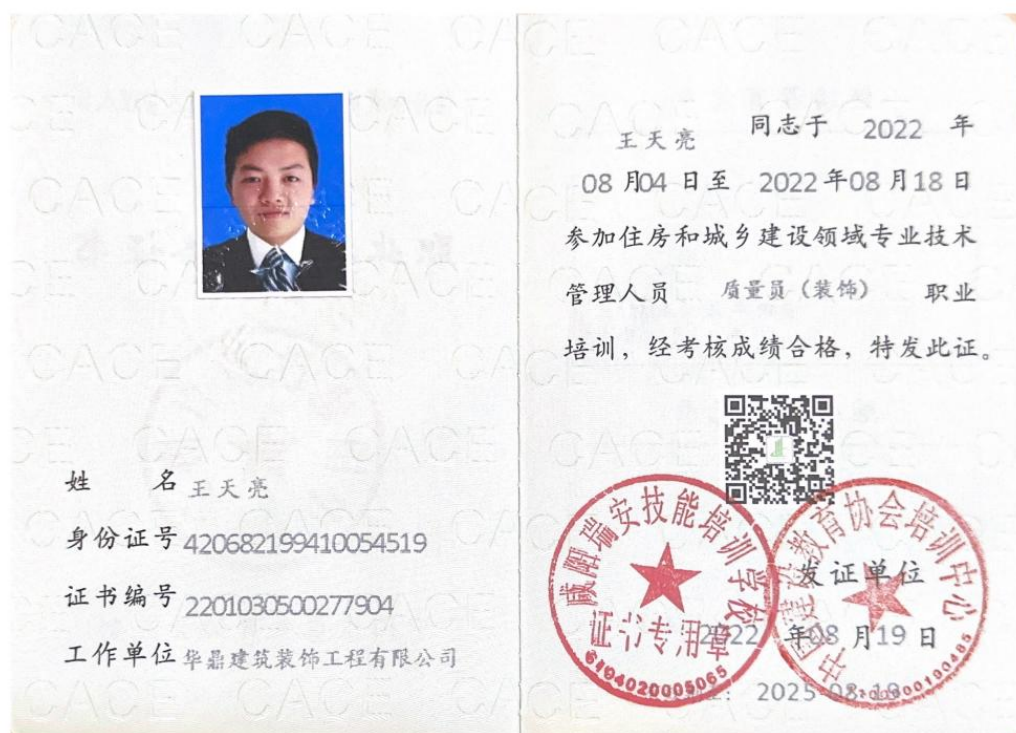 姓 名 王天亮
身份证号 420682199410054519
证书编号 2201030500277904
工作单位 华鼎建筑装饰工程有限公司
王天亮 同志于 2022 年
08 月04 日至 2022 年08 月18 日
参加住房和城乡建设领域专业技术
管理人员 质量员（装饰） 职业
培训，经考核成绩合格，特发此证。
咸阳瑞安技能培训学校
证书专用章
6104020005065
中国建设教育协会培训中心
发证单位
2022 年08 月19 日
2025-08-18
CACE